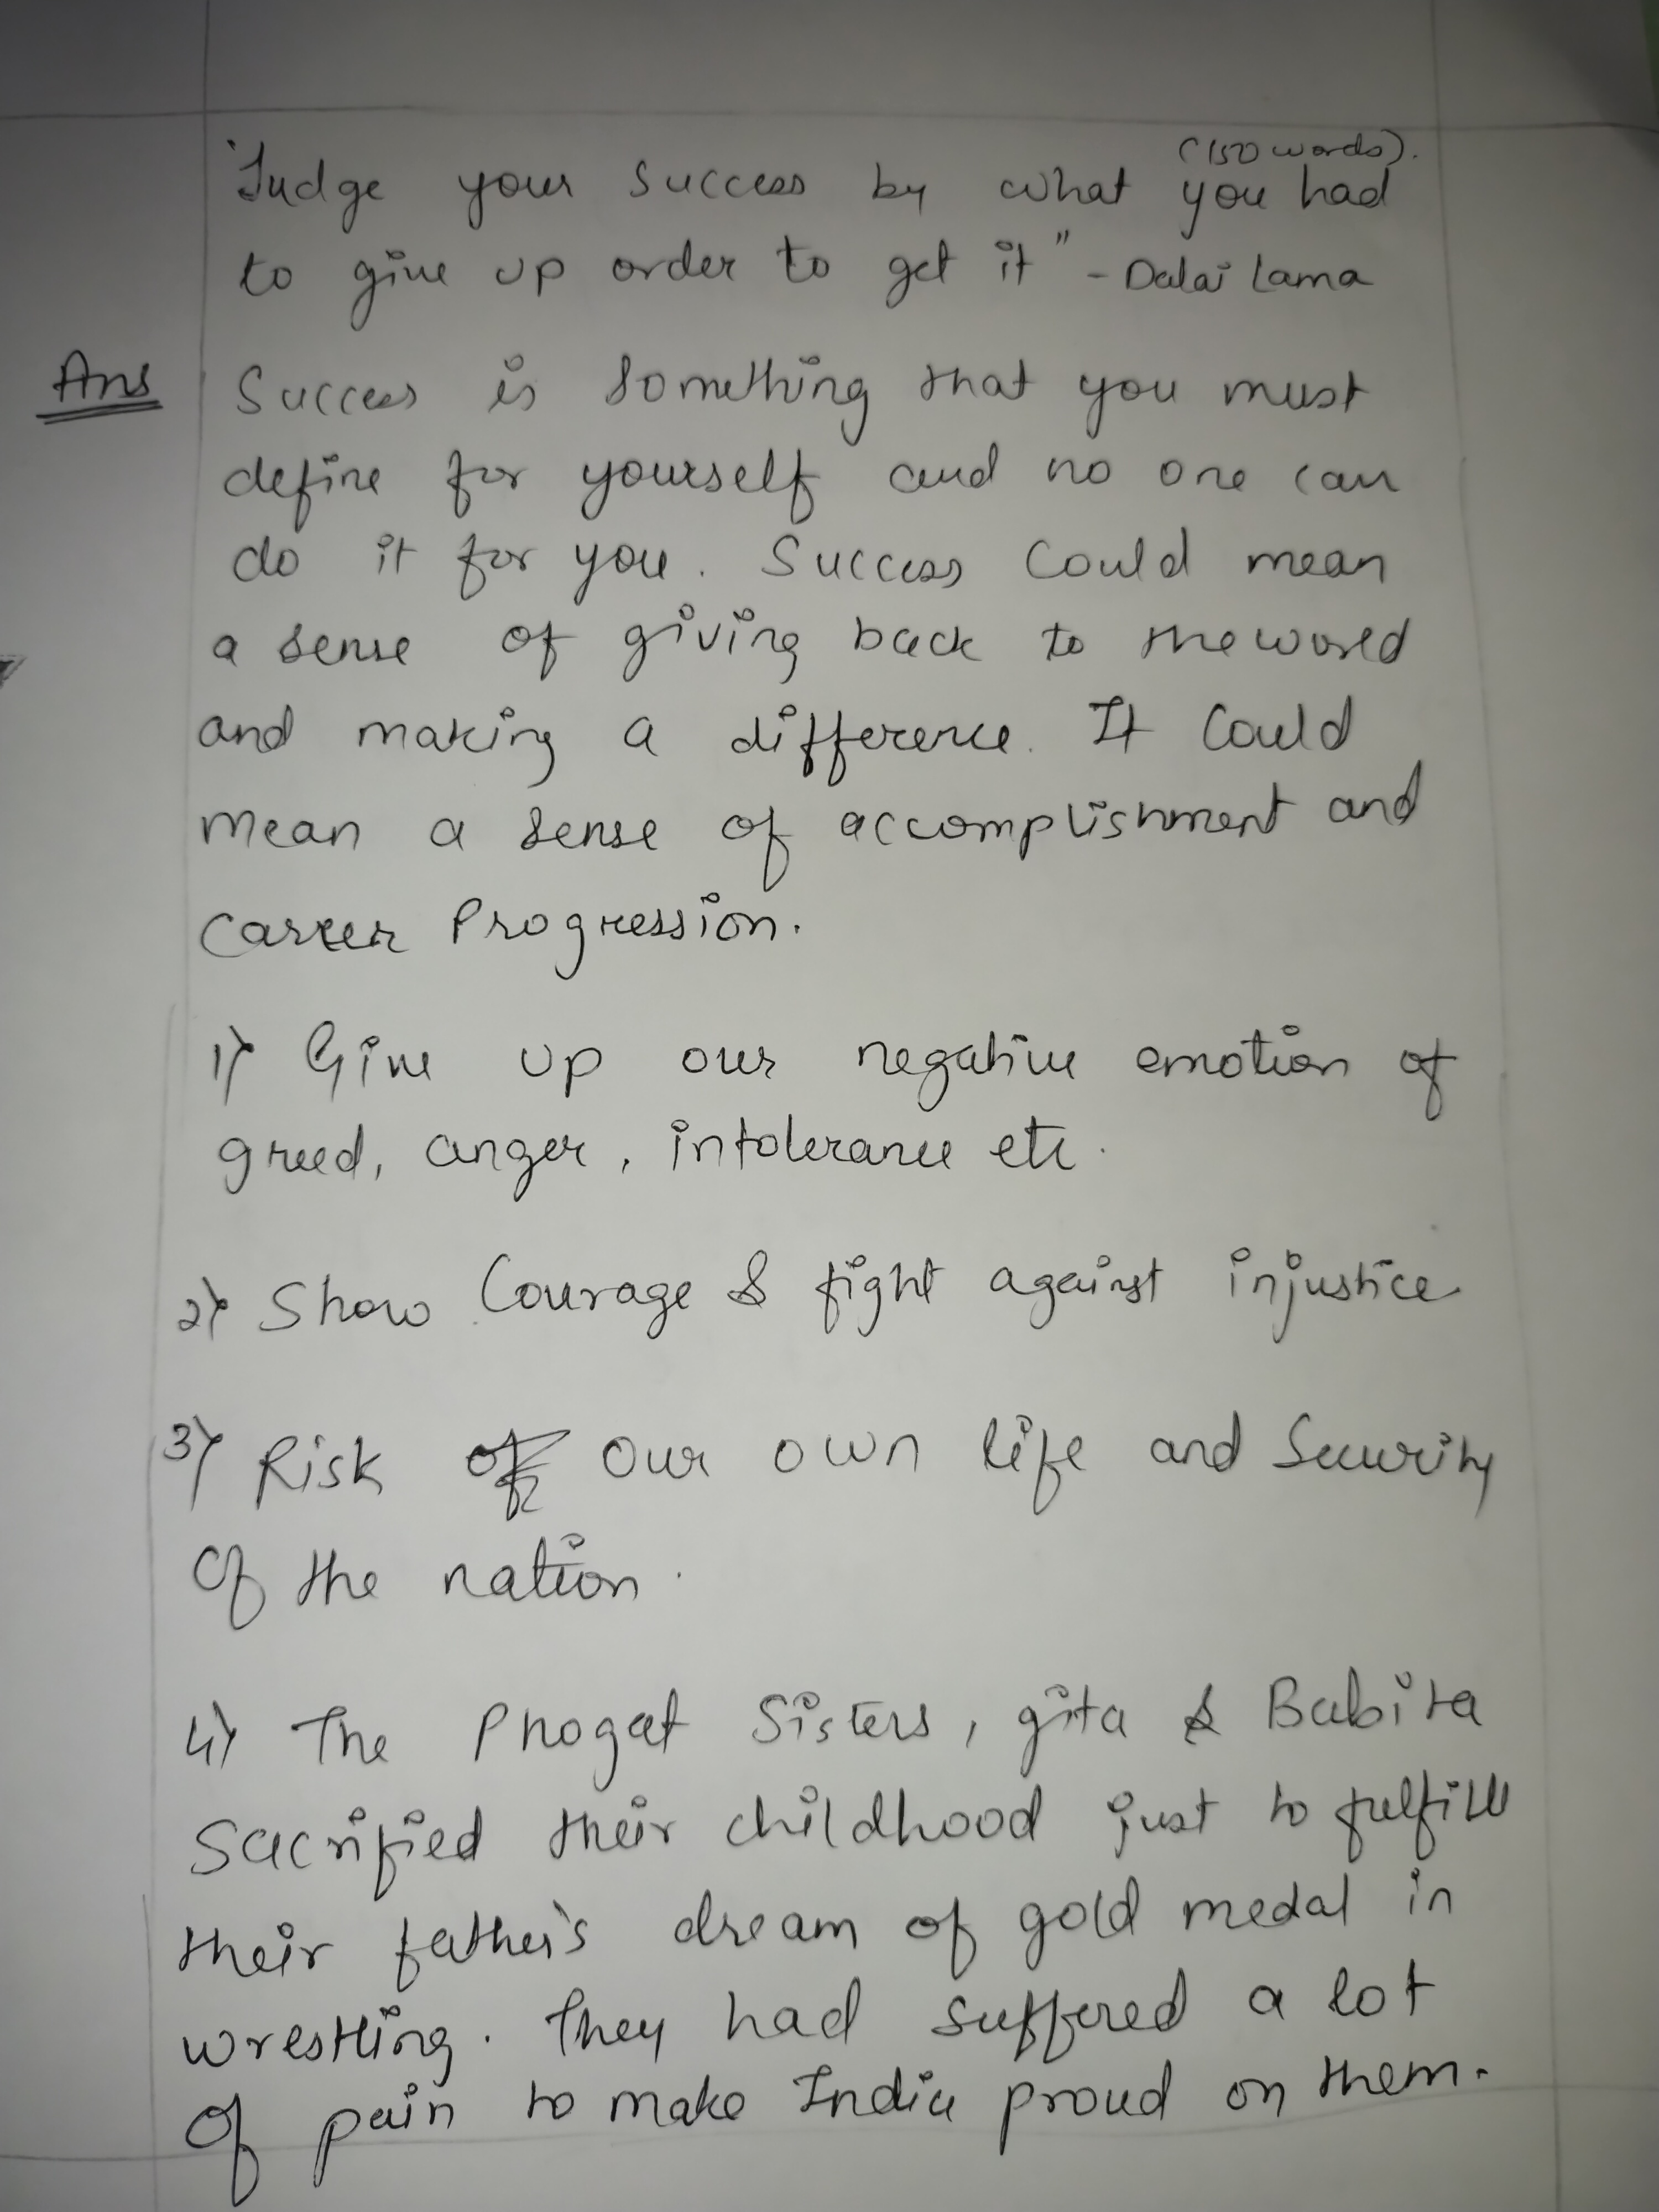 (150 words).
"Judge your success by what you had
to give up order to get it" - Dalai Lama
Ans
Success is something that you must
define for yourself and no one can
do it for you. Success could mean
a sense of giving back to the world
and making a difference. It could
mean a sense of accomplishment and
career progression.
1) Give up our negative emotion of
greed, anger, intolerance etc.
2) Show Courage & fight against injustice
3) Risk our own life and security
of the nation.
4) The Phogat Sisters, gita & Babita
sacrified their childhood just to fulfill
their father's dream of gold medal in
wrestling. They had suffered a lot
of pain to make India proud on them.